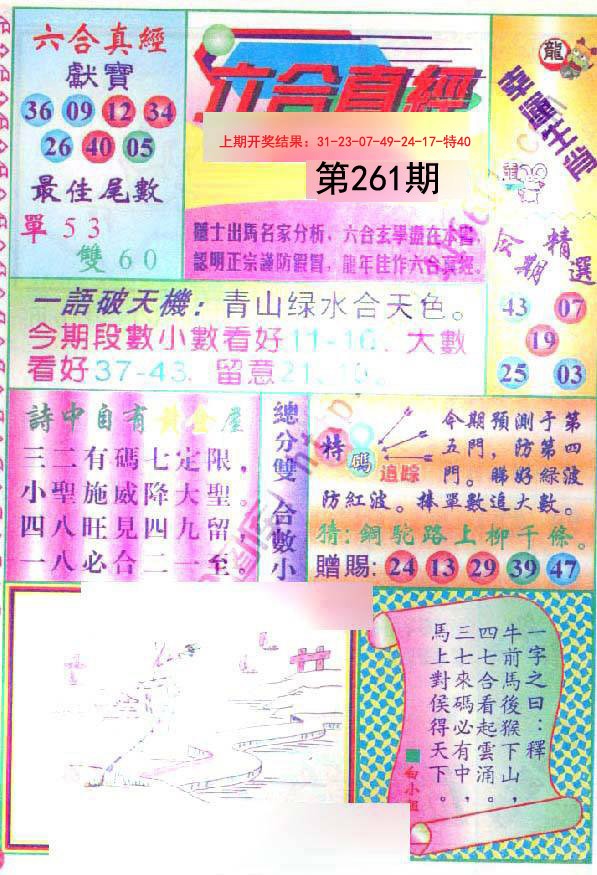 六合真經
獻寶
36 09 12 34
26 40 05
最佳尾數
單 5 3
雙 6 0
六合真經
上期开奖结果：31-23-07-49-24-17-特40
第261期
隱士出馬名家分析，六合玄學盡在本書，
認明正宗謹防假冒，龍年佳作六合真經。
龍
幸運生肖
鼠
今期精選
43 07
19
25 03
一語破天機：青山绿水合天色。
今期段數小數看好11-16，大數
看好37-43，留意21、10。
詩中自有黃金屋
三二有碼七定限，
小聖施威降大聖。
四八旺見四九留，
一八必合二一至。
總分雙 合數小
特碼
追踪
今期預測于第
五門，防第四
門。睇好綠波
防紅波。捧單數追大數。
猜：銅駝路上柳千條。
贈賜：24 13 29 39 47
一字之曰：釋
牛前馬後猴下山，
四七合看起雲涌。
三七來碼必有中，
馬上對侯得天下。
白小姐